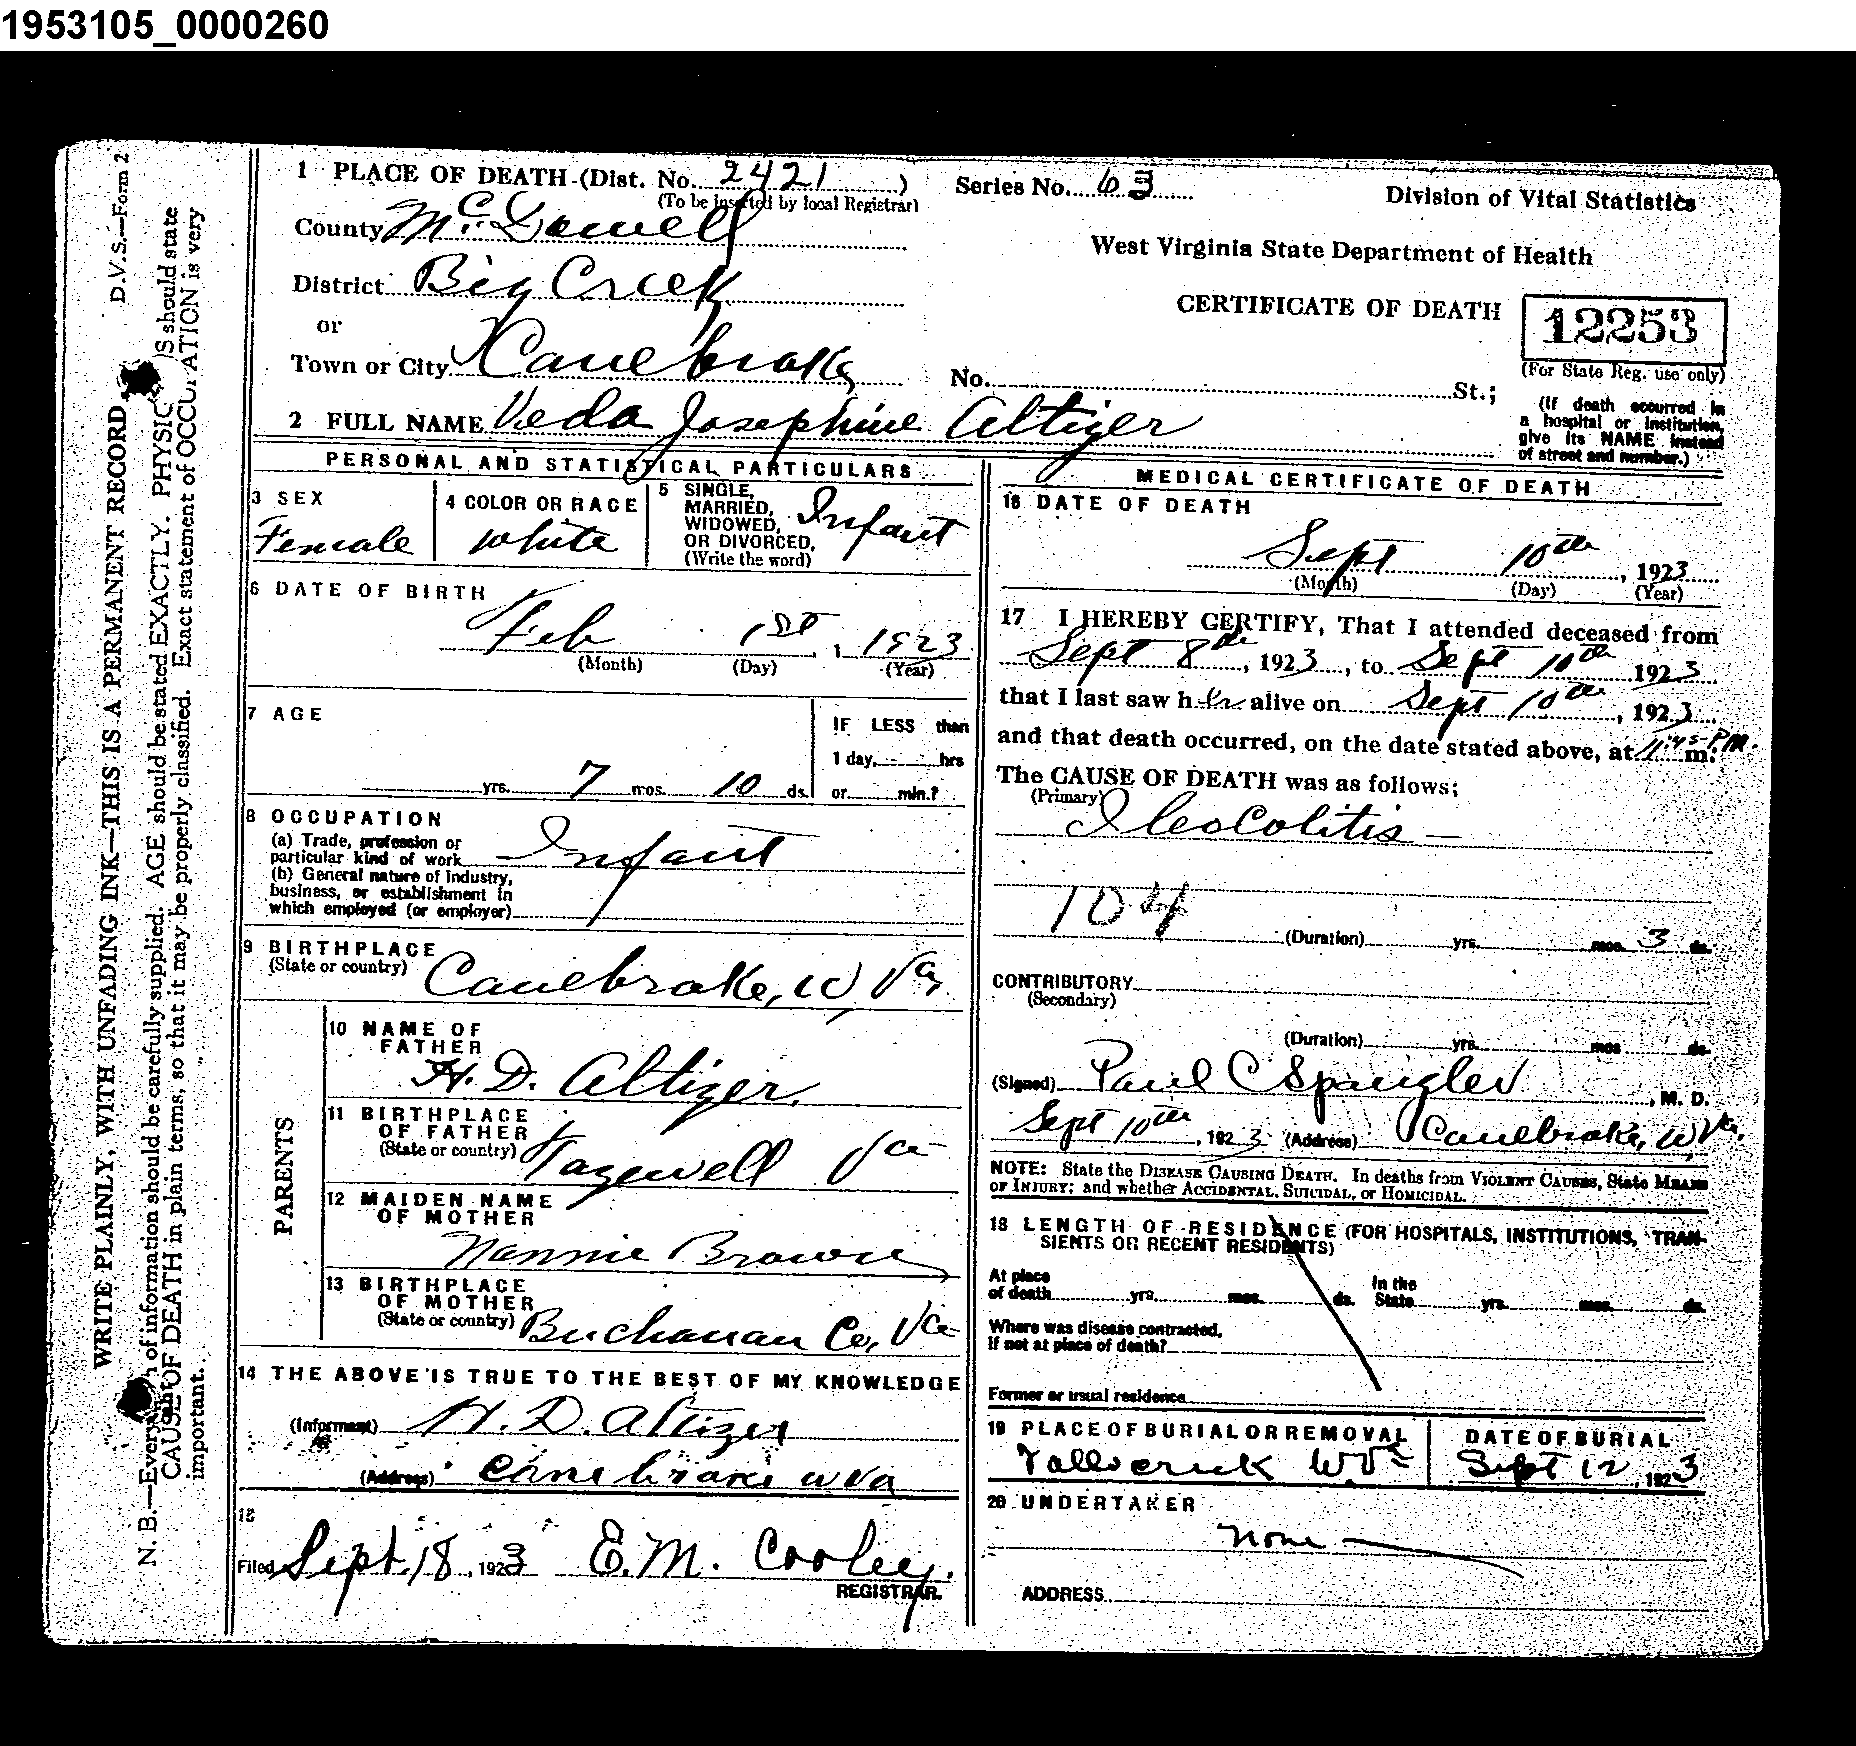 1953105_0000260
D.V.S.—Form 2
WRITE PLAINLY, WITH UNFADING INK—THIS IS A PERMANENT RECORD
N. B.—Every of information should be carefully supplied. AGE should be stated EXACTLY. PHYSIC S should state
CAUSE OF DEATH in plain terms, so that it may be properly classified. Exact statement of OCCUPATION is very
important.
1 PLACE OF DEATH (Dist. No. 2421 )
(To be inserted by local Registrar)
Series No. 63
Division of Vital Statistics
County McDowell
West Virginia State Department of Health
District Big Creek
CERTIFICATE OF DEATH
12253
(For State Reg. use only)
or
Town or City Canebrake
No. St.;
(If death occurred in
a hospital or institution,
give its NAME instead
of street and number.)
2 FULL NAME Veda Josephine Altizer
PERSONAL AND STATISTICAL PARTICULARS
3 SEX
Female
4 COLOR OR RACE
White
5 SINGLE,
MARRIED,
WIDOWED,
OR DIVORCED,
(Write the word)
Infant
6 DATE OF BIRTH
Feb 1st, 1923
(Month) (Day) (Year)
7 AGE
yrs. 7 mos. 10 ds.
IF LESS than
1 day, hrs
or min.?
8 OCCUPATION
(a) Trade, profession or
particular kind of work Infant
(b) General nature of industry,
business, or establishment in
which employed (or employer)
9 BIRTHPLACE
(State or country) Canebrake, W Va,
PARENTS
10 NAME OF
FATHER
H. D. Altizer.
11 BIRTHPLACE
OF FATHER
(State or country) Tazewell Va
12 MAIDEN NAME
OF MOTHER
Nannie Brown
13 BIRTHPLACE
OF MOTHER
(State or country) Buchanan Co, Va
14 THE ABOVE IS TRUE TO THE BEST OF MY KNOWLEDGE
(Informant) H. D. Altizer
(Address) Canebrake W Va
15
Filed Sept. 18, 1923 E. M. Cooley.
REGISTRAR.
MEDICAL CERTIFICATE OF DEATH
16 DATE OF DEATH
Sept 10th, 1923
(Month) (Day) (Year)
17 I HEREBY CERTIFY, That I attended deceased from
Sept 8th, 1923, to Sept 10th 1923
that I last saw her alive on Sept 10th, 1923
and that death occurred, on the date stated above, at 11:45 P.M. m.
The CAUSE OF DEATH was as follows;
(Primary)
Ileocolitis —
104
(Duration) yrs. mos. 3 ds.
CONTRIBUTORY
(Secondary)
(Duration) yrs. mos ds.
(Signed) Paul C Spangler, M. D.
Sept 10th, 1923 (Address) Canebrake, W Va.
NOTE: State the DISEASE CAUSING DEATH. In deaths from VIOLENT CAUSES, State MEANS
OF INJURY; and whether ACCIDENTAL, SUICIDAL, or HOMICIDAL.
18 LENGTH OF RESIDENCE (FOR HOSPITALS, INSTITUTIONS, TRAN-
SIENTS OR RECENT RESIDENTS)
At place
of death yrs. mos. ds.
In the
State yrs. mos. ds.
Where was disease contracted,
if not at place of death?
Former or usual residence
19 PLACE OF BURIAL OR REMOVAL
W Va
DATE OF BURIAL
Sept 12, 1923
20 UNDERTAKER
none
ADDRESS